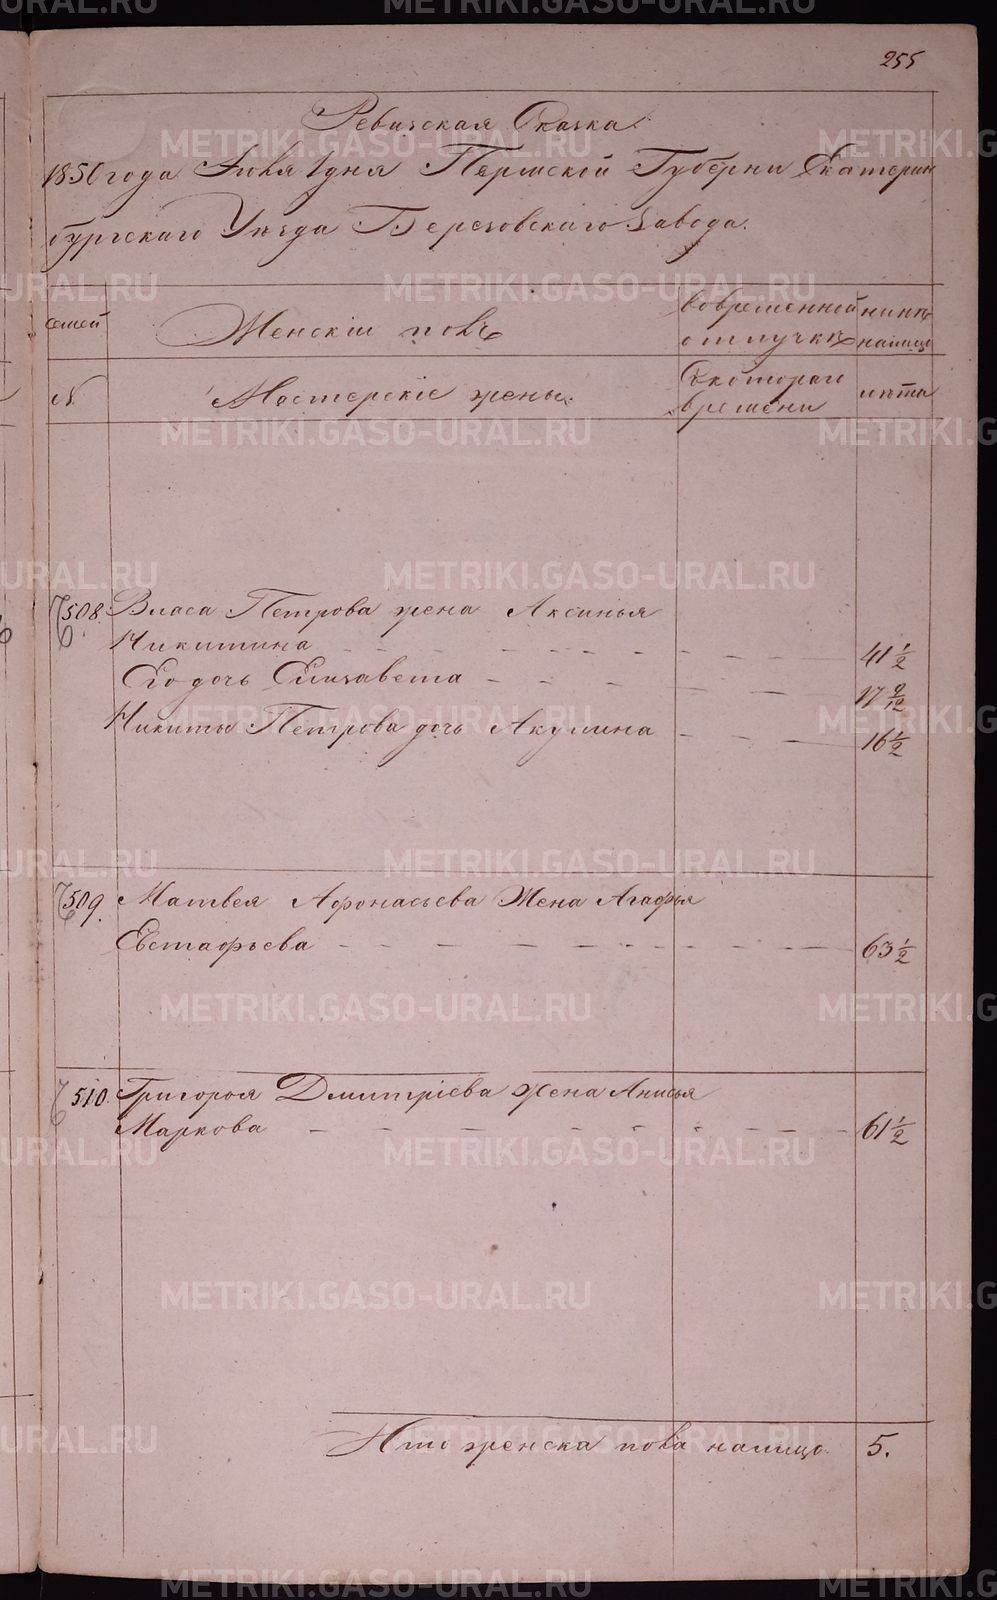 255
Ревизская Сказка
1850 года Июня 1 дня Пермской Губерни Екатерин
бургскаго Уѣзда Березовскаго Завода.
семей
Женскій полъ
Во временной
отлучкѣ
нынѣ
налицо
№
Мастерскіе жены.
Съ котораго
времени
лѣта
508. Власа Петрова жена Аксинья
Никитина 41 1/2
Его дочь Елизавета 17 9/12
Никиты Петрова дочь Акулина 16 1/2
509. Матвея Афонасьева Жена Агафья
Евстафьева 63 1/2
510. Григорья Дмитріева жена Анисья
Маркова 61 1/2
Итого женска пола налицо 5.
METRIKI.GASO-URAL.RU